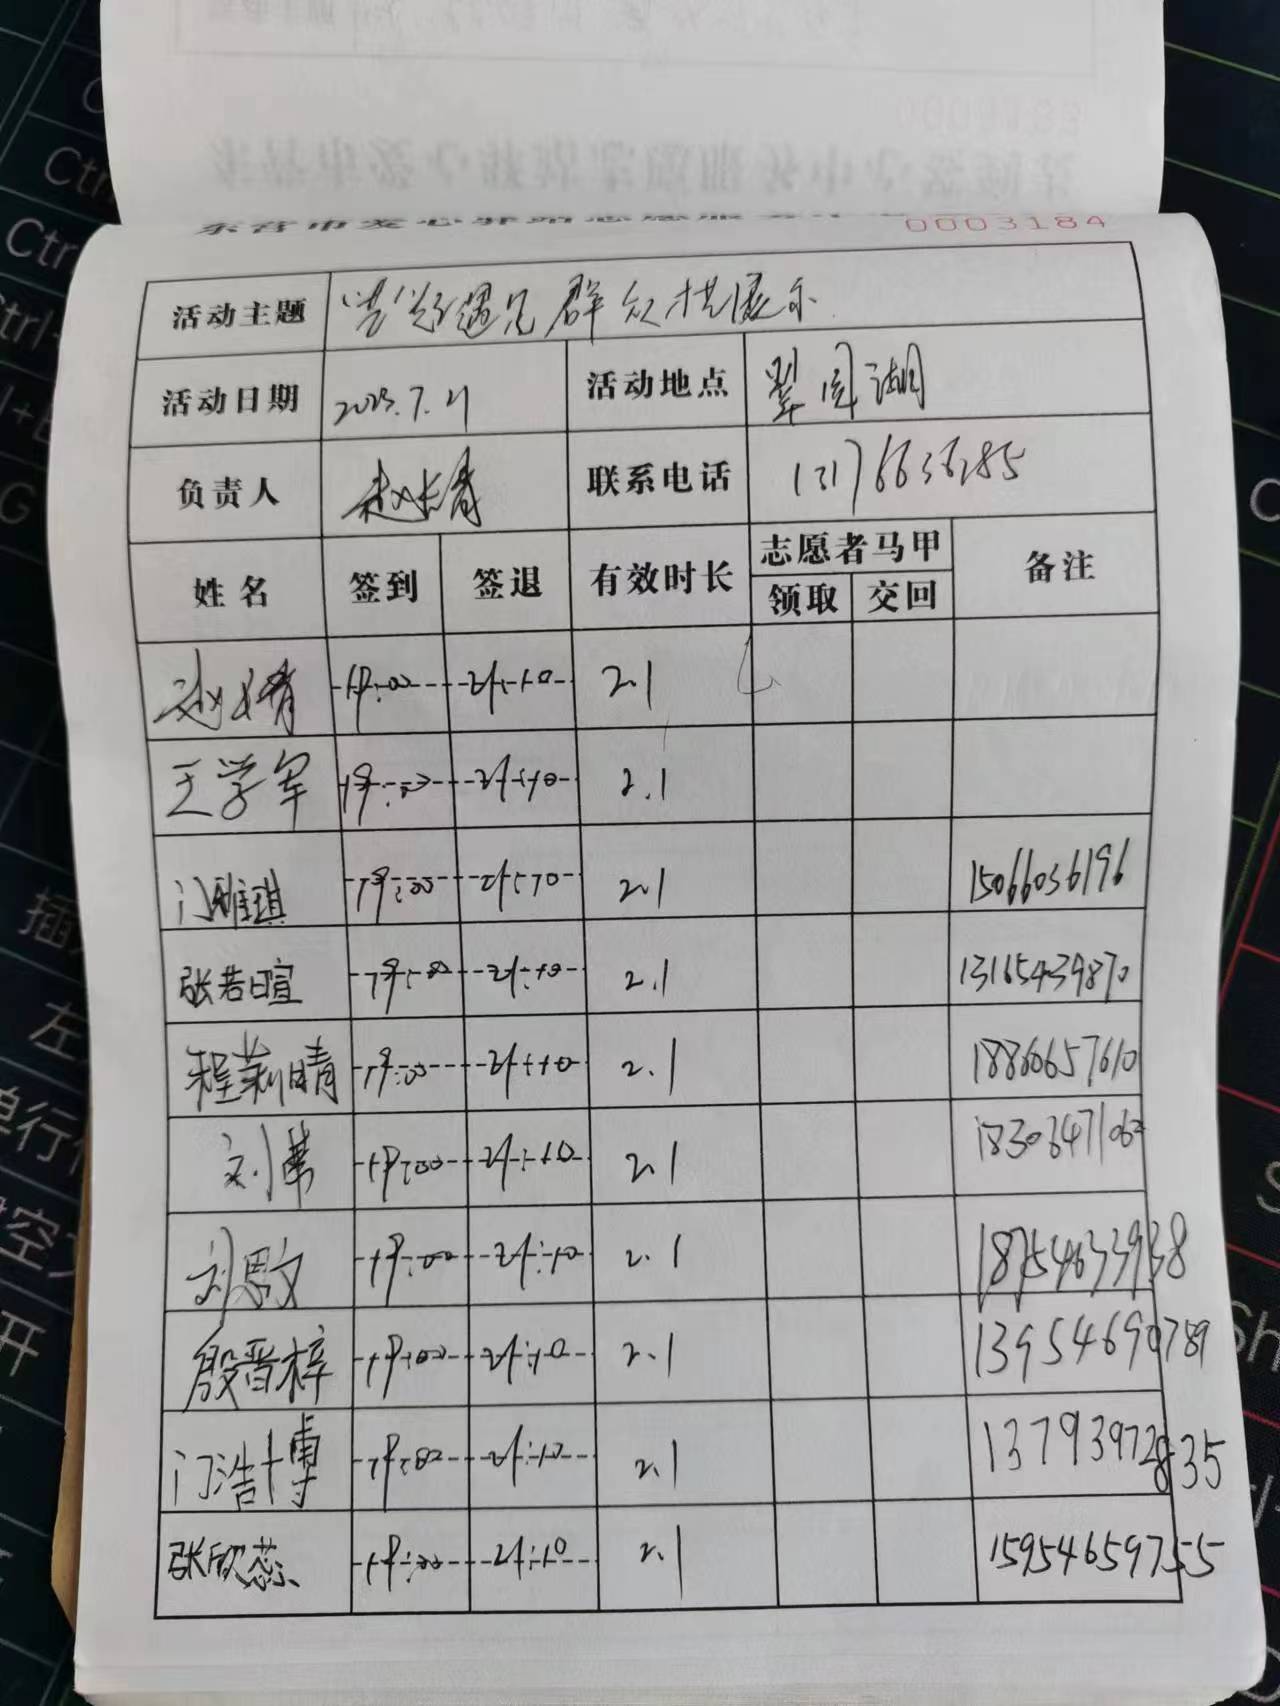 东营市爱心驿站志愿服务中心
0003184
活动主题 遇见群众才艺展示
活动日期 2023.7.21 活动地点 翠园湖
负责人 赵长青 联系电话 13176636285
姓名 签到 签退 有效时长 志愿者马甲 备注
领取 交回
赵长青 19:00 21:10 2.1
王学军 19:00 21:10 2.1
门雅琪 19:00 21:10 2.1 15066036196
张若暄 19:00 21:10 2.1 13165439870
程莉晴 19:00 21:10 2.1 18860657610
刘 19:00 21:10 2.1
刘思文 19:00 21:10 2.1 18754633938
殷晋梓 19:00 21:10 2.1 13954690789
门浩博 19:00 21:10 2.1 13793972835
张欣蕊 19:00 21:10 2.1 15954659755